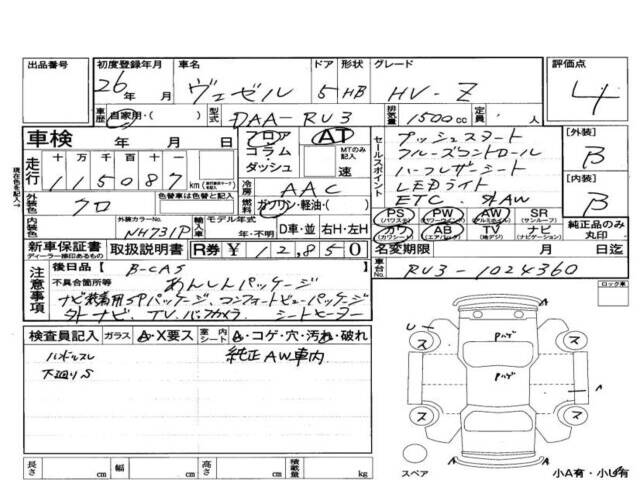 出品番号 初度登録年月 車名 ドア 形状 グレード 評価点
26年 月 ヴェゼル 5 HB HV-Z 4
車歴 自家用・( ) 型式 DAA-RU3 排気量 1500cc 定員 人
車検 年 月 日 フロア コラム・ダッシュ AT MTのみ記入 速
セールスポイント プッシュスタート
クルーズコントロール
ハーフレザーシート
LEDライト
ETC. 社外AW
[外装] B
[内装] B
走行 十 万 千 百 十 一
115087 km
冷房 AAC
燃料 ガソリン・軽油・( )
外装色 クロ 色替車は色替と記入
内装色 外装カラーNo. NH731P 輸入車 モデル年式 年・不明 D車・並 右H・左H
PS (パワステ) PW (パワーウィンドウ) AW (アルミホイル) SR (サンルーフ)
カワ (カワシート) AB (エアバッグ) TV (地デジ) ナビ (ナビゲーション)
純正品のみ丸印
新車保証書 ディーラー捺印あるもの 取扱説明書 R券 ¥12,850
名変期限 月 日迄
注意事項 後日品 [B-CAS ]
不具合箇所等 あんしんパッケージ
ナビ装着用SPパッケージ、コンフォートビューパッケージ
外ナビ、TV、バックカメラ シートヒーター
車台No. RU3-1024360
ロック車
検査員記入 ガラス A・X要ス 室内シート A・コゲ・穴・汚れ・破れ
ハンドルスレ
下廻りS
純正AW車内
Pハゲ
Pハゲ
U
A
A
ス ス
ス ス
長さ cm 幅 cm 高さ cm 積載量 kg
スペア 小A有・小U有
現在色を記入→